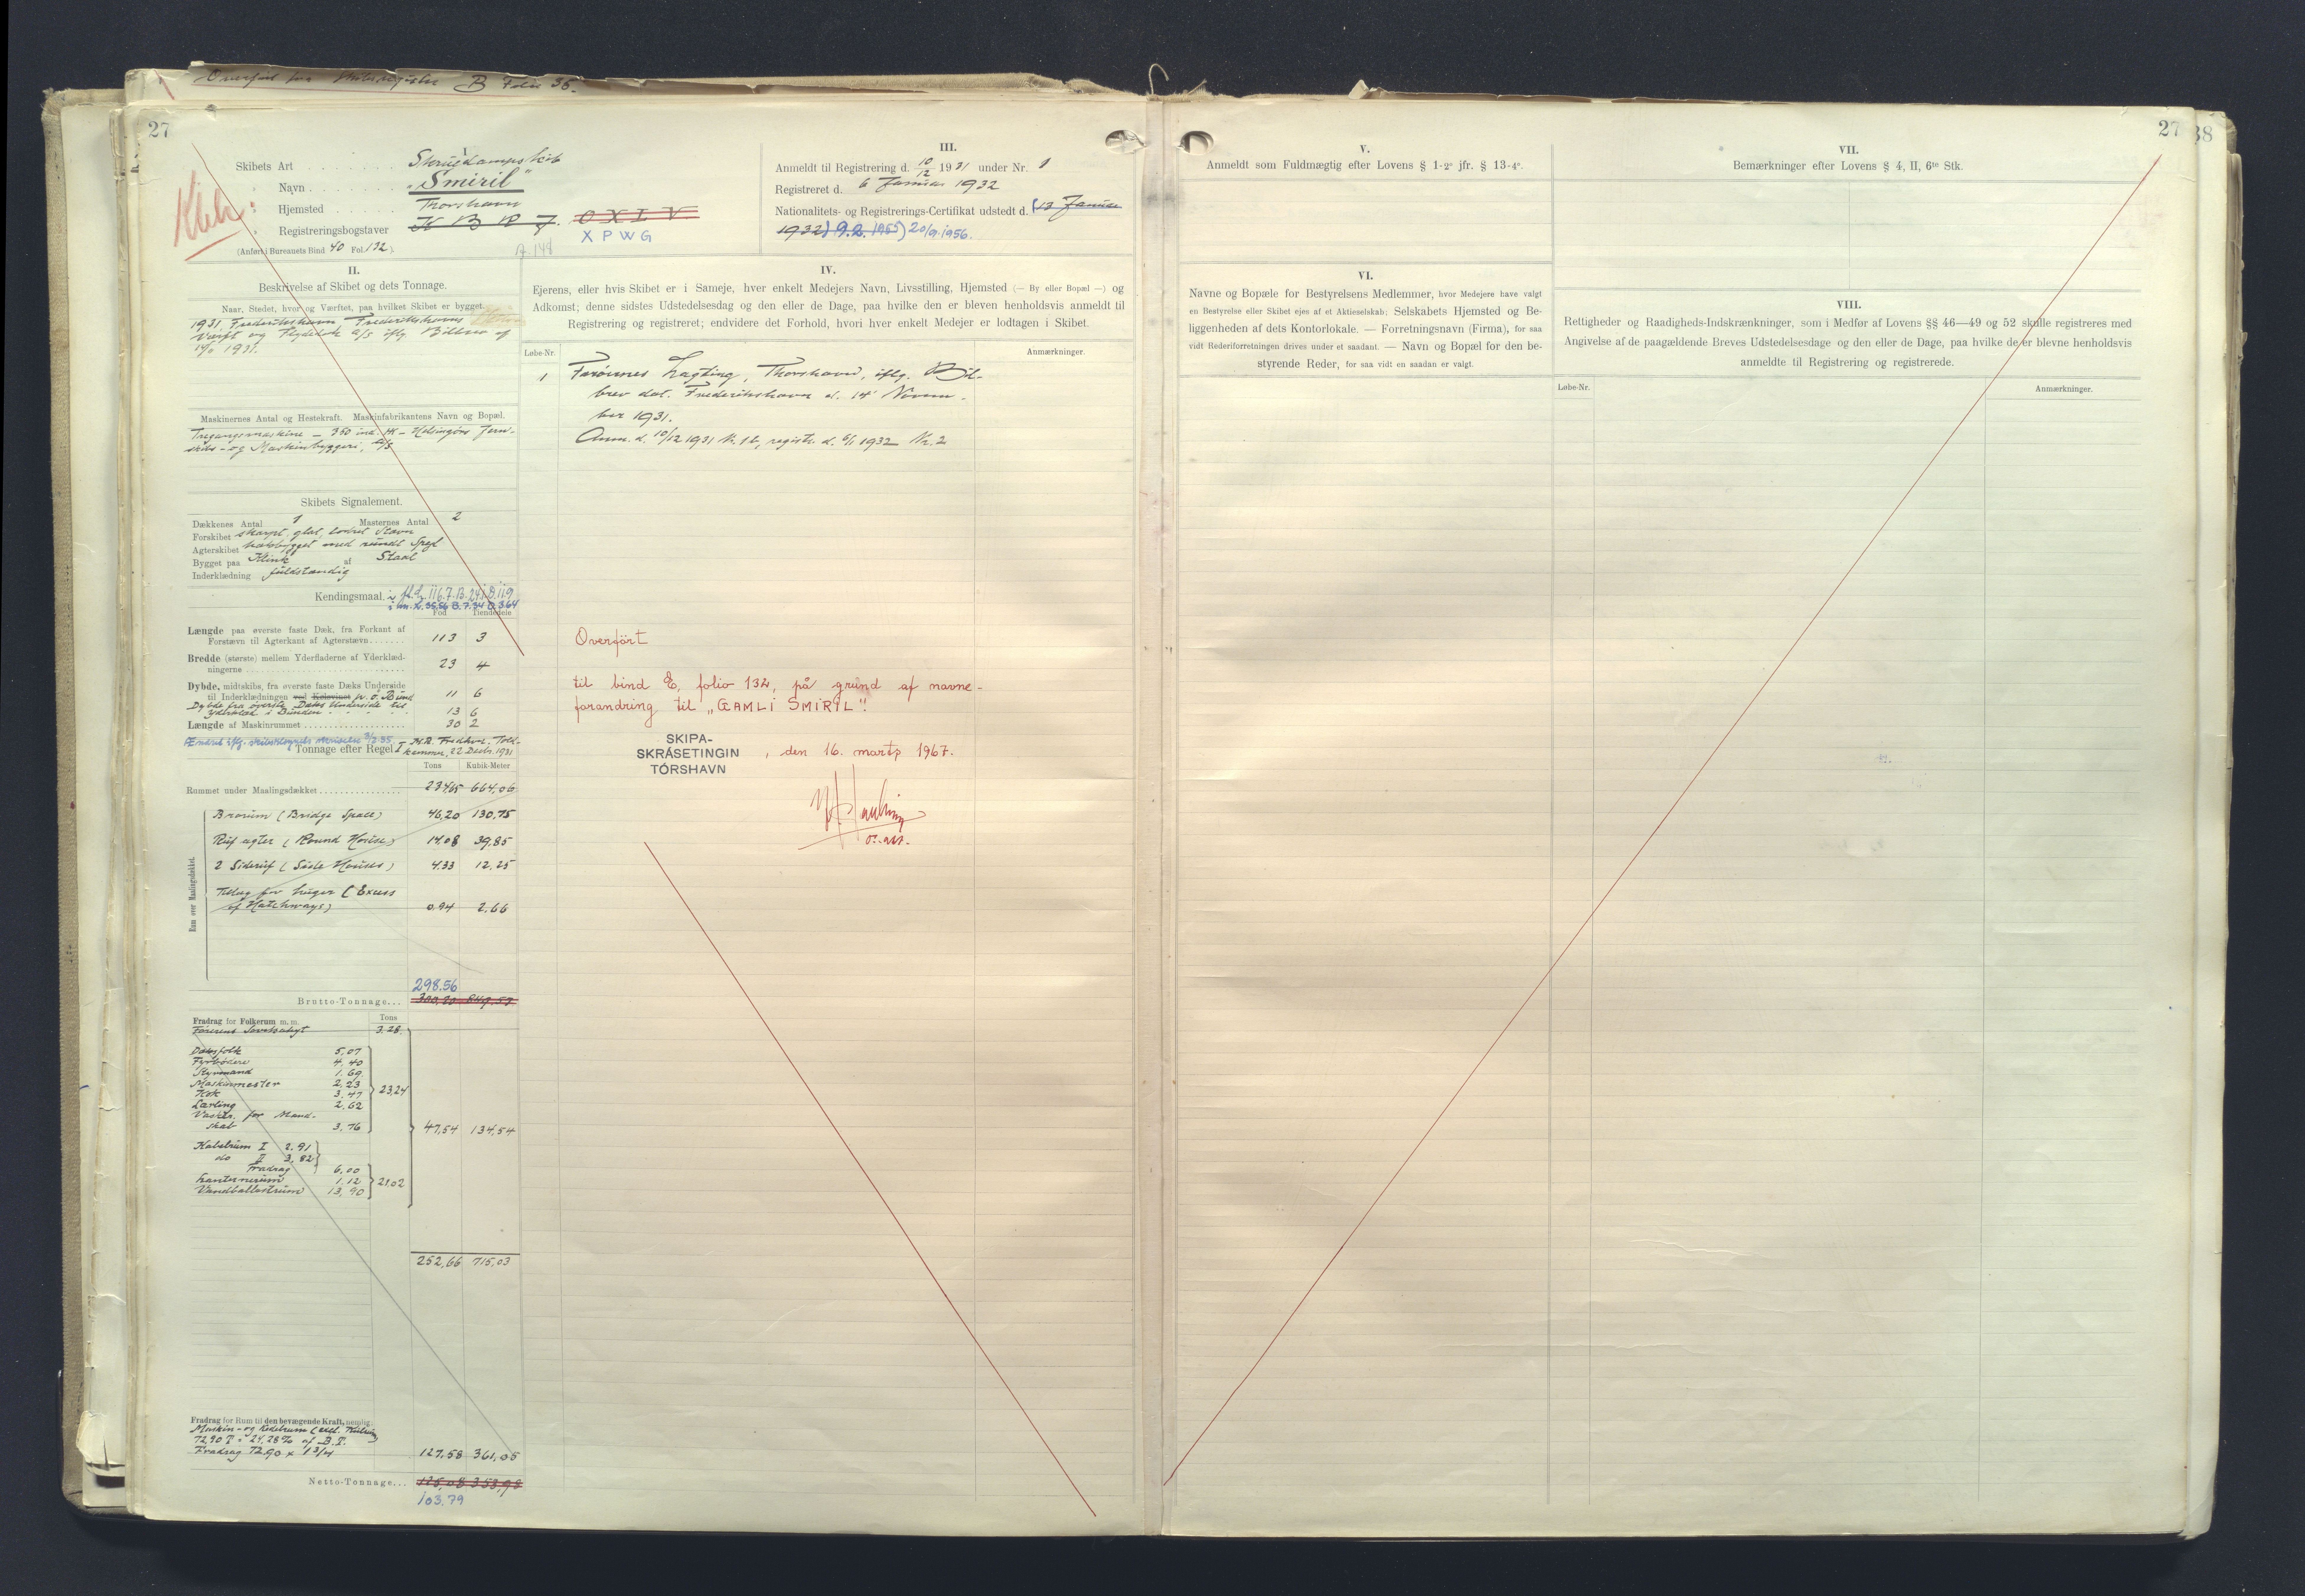 Overført fra Skibsregister B Folio 36.
27
I.
Skibets Art Skruedampskib
Navn "Smiril"
Hjemsted Thorshavn
Registreringsbogstaver K B R J. O X I V
X P W G
(Anført i Bureauets Bind 40 Fol. 132).
II.
Beskrivelse af Skibet og dets Tonnage.
Naar, Stedet, hvor og Værftet, paa hvilket Skibet er bygget.
1931, Frederikshavn Frederikshavns
Værft og Flydedok A/S iflg. Bilbrev af
1931.
Maskinernes Antal og Hestekraft. Maskinfabrikantens Navn og Bopæl.
Tregangsmaskine – 350 ind. HK – Helsingørs Jern-
skibs- og Maskinbyggeri, A/S
Skibets Signalement.
Dækkenes Antal 1 Masternes Antal 2
Forskibet skarpt, glat, lodret Stævn
Agterskibet hækbygget med rundt Spejl
Bygget paa Klink af Staal
Inderklædning fuldstændig
Kendingsmaal. L. 116.7. B. 24.1 D. 11.9
i m. L. 35.56 B. 7.34 D. 3.64
Fod Tiendedele
Længde paa øverste faste Dæk, fra Forkant af
Forstævn til Agterkant af Agterstævn 113 3
Bredde (største) mellem Yderfladerne af Yderklæd-
ningerne 23 4
Dybde, midtskibs, fra øverste faste Dæks Underside
til Inderklædningen ved Kølsvinet p. o. Bund 11 6
Dybde fra øverste Dæks Underside til
Yderklæd i Bunden 13 6
Længde af Maskinrummet 30 2
Tonnage efter Regel I M.B. Fredhvn. Told-
kammer, 22 Decbr. 1931
Tons Kubik-Meter
Rummet under Maalingsdækket 234,65 664,06
Rum over Maalingsdækket.
Brorum (Bridge Space) 46,20 130,75
Ruf agter (Round House) 14,08 39,85
2 Sideruf (Side Houses) 4,33 12,25
Tillæg for Luger (Excess
of Hatchways) 0,94 2,66
298.56
Brutto-Tonnage 300,20 849,57
Fradrag for Folkerum m. m. Tons
Førerens Sovekahyt 3,28
Dæksfolk 5,07
Fyrbødere 4,40
Styrmand 1,69
Maskinmester 2,23
Kok 3,47
Lærling 2,62
23,24
Vaskr. for Mand-
skab 3,76
47,54 134,54
Kabelrum I 2,91
do II 3,82
Fradrag 6,00
Lanternerum 1,12
Vandballastrum 13,90
21,02
252,66 715,03
Fradrag for Rum til den bevægende Kraft, nemlig:
Maskin- og Kedelrum (excl. Kulrum)
72,90 T = 24,28% af B. T.
Fradrag 72,90 x 1 3/4 127,58 361,05
Netto-Tonnage 125,08 353,98
103.79
III.
Anmeldt til Registrering d. 10/12 1931 under Nr. 1
Registreret d. 6 Januar 1932
Nationalitets- og Registrerings-Certifikat udstedt d. (13 Januar
1932) 9.2. 1955) 20/9.1956.
IV.
Ejerens, eller hvis Skibet er i Sameje, hver enkelt Medejers Navn, Livsstilling, Hjemsted (— By eller Bopæl —) og
Adkomst; denne sidstes Udstedelsesdag og den eller de Dage, paa hvilke den er bleven henholdsvis anmeldt til
Registrering og registreret; endvidere det Forhold, hvori hver enkelt Medejer er lodtagen i Skibet.
Løbe-Nr. Anmærkninger.
1 Færøernes Lagting, Thorshavn, iflg. Bil-
brev dat. Frederikshavn d. 14' Novem-
ber 1931.
Anm. d. 10/12 1931 Nr. 1 b, registr. d. 6/1 1932 Nr. 2
Overført
til bind E, folio 132, på grund af navne-
forandring til „GAMLI SMIRIL".
SKIPA-
SKRÁSETINGIN
TÓRSHAVN
, den 16. marts 1967.
27
38
V.
Anmeldt som Fuldmægtig efter Lovens § 1-2° jfr. § 13-4°.
VI.
Navne og Bopæle for Bestyrelsens Medlemmer, hvor Medejere have valgt
en Bestyrelse eller Skibet ejes af et Aktieselskab; Selskabets Hjemsted og Be-
liggenheden af dets Kontorlokale. — Forretningsnavn (Firma), for saa
vidt Rederiforretningen drives under et saadant. — Navn og Bopæl for den be-
styrende Reder, for saa vidt en saadan er valgt.
VII.
Bemærkninger efter Lovens § 4, II, 6te Stk.
VIII.
Rettigheder og Raadigheds-Indskrænkninger, som i Medfør af Lovens §§ 46—49 og 52 skulle registreres med
Angivelse af de paagældende Breves Udstedelsesdage og den eller de Dage, paa hvilke de er blevne henholdsvis
anmeldte til Registrering og registrerede.
Løbe-Nr. Anmærkninger.